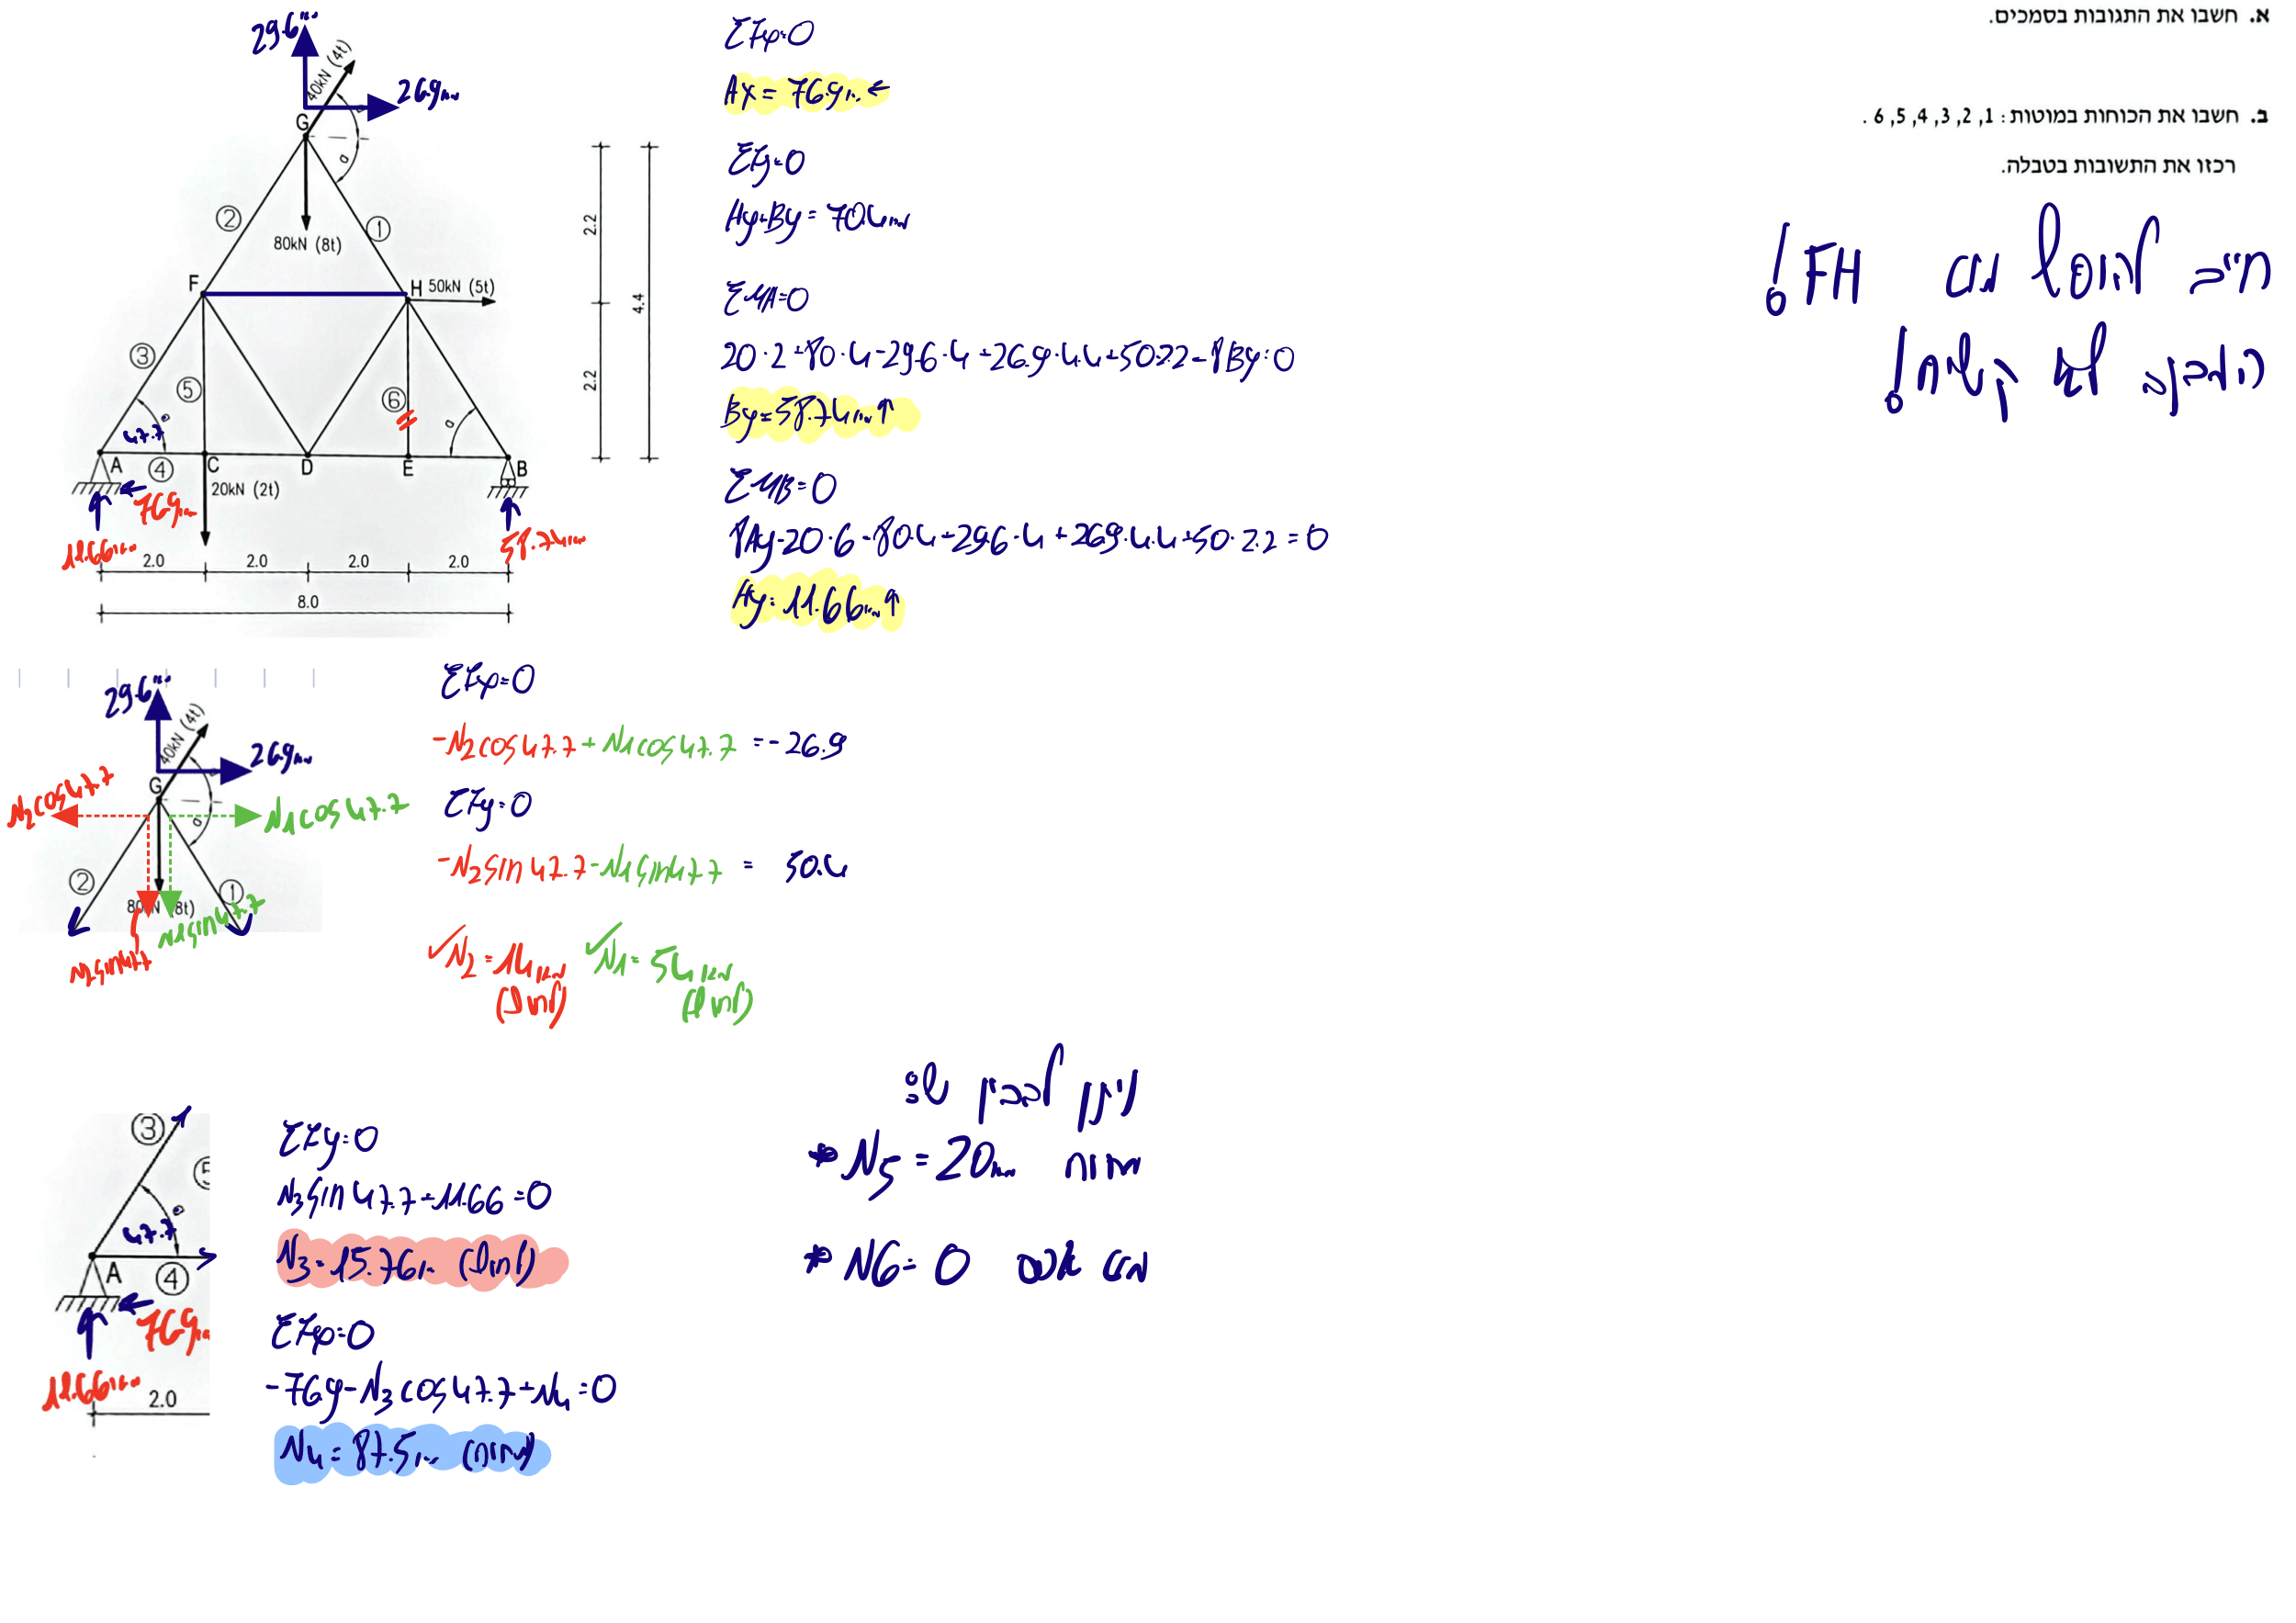 א. חשבו את התגובות בסמכים.
ב. חשבו את הכוחות במוטות: 1, 2, 3, 4, 5, 6 .
רכזו את התשובות בטבלה.
חייב להוסיף מוט FH!
המבנה לא קשיח!
29.6 kN
40kN (4t)
26.9 kN
α
G
α
② ①
80kN (8t)
F H 50kN (5t)
③ ⑤ ⑥
47.7° α
A ④ C D E B
20kN (2t)
76.9 kN
11.66 kN
58.74 kN
2.0 2.0 2.0 2.0
8.0
2.2
2.2
4.4
ΣFx=0
Ax = 76.9 kN ←
ΣFy=0
Ay+By = 70.4 kN
ΣMA=0
20·2+80·4-29.6·4+26.9·4.4+50·2.2-8By=0
By=58.74 kN ↑
ΣMB=0
8Ay-20·6-80·4+29.6·4+26.9·4.4+50·2.2=0
Ay=11.66 kN ↑
29.6 kN
40kN (4t)
26.9 kN
G
α
N2cos47.7
N1cos47.7
② ①
80kN (8t)
N1sin47.7
N2sin47.7
ΣFx=0
-N2cos47.7+N1cos47.7 =-26.9
ΣFy=0
-N2sin47.7-N1sin47.7 = 50.4
✓N2=-14 kN ✓N1=-54 kN
(לחוץ) (לחוץ)
③
⑤
47.7°
A ④
76.9 kN
11.66 kN
2.0
ΣFy=0
N3sin47.7+11.66=0
N3=-15.76 kN (לחוץ)
ΣFx=0
-76.9-N3cos47.7+N4=0
N4=87.5 kN (מתוח)
ניתן להבין ש:
* N5=20 kN מתוח
* N6=0 מוט אפס